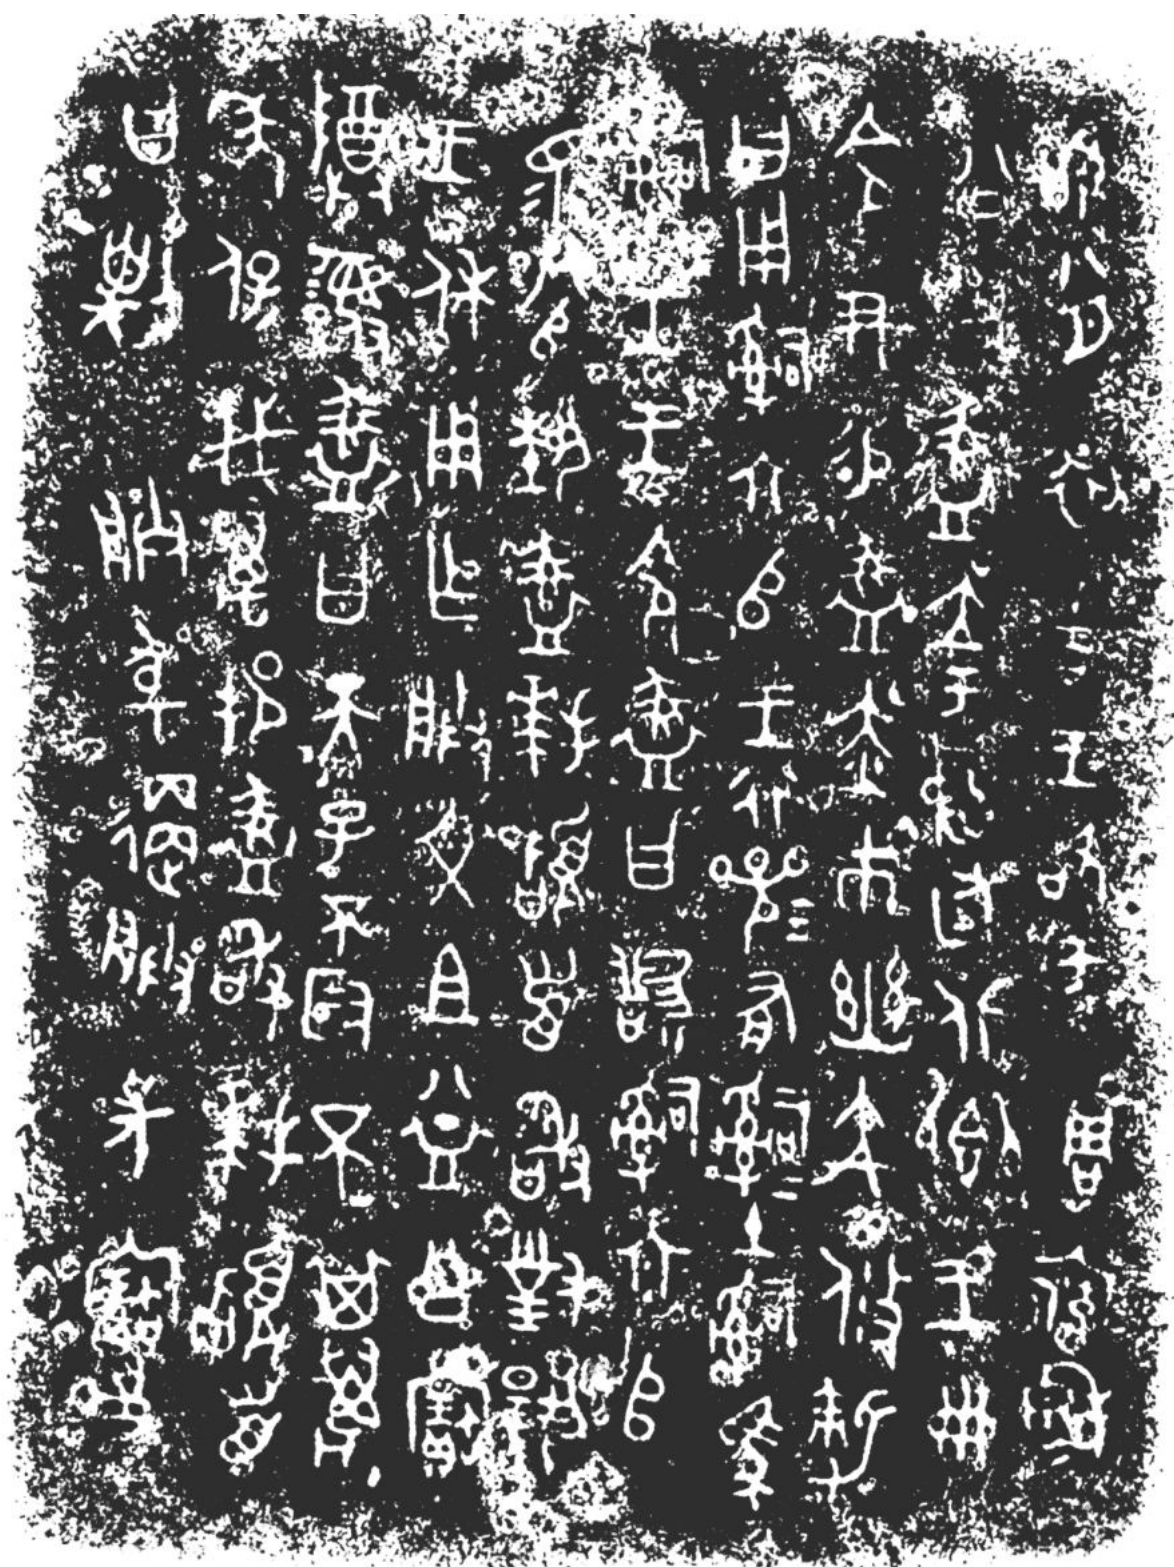 唯八月初吉王各于周廟穆
公右盠立于中廷北鄉王冊
令尹易盠赤巿幽亢攸勒
曰用司六𠂤王行參有司司土司馬
司工王令盠曰司六𠂤
眔八𠂤埶盠拜𩒨首敢對揚
王休用乍朕文且益公寶
尊彝盠曰天子不叚不其萬
年保我萬邦盠敢拜𩒨首
曰剌朕身更朕先寶事